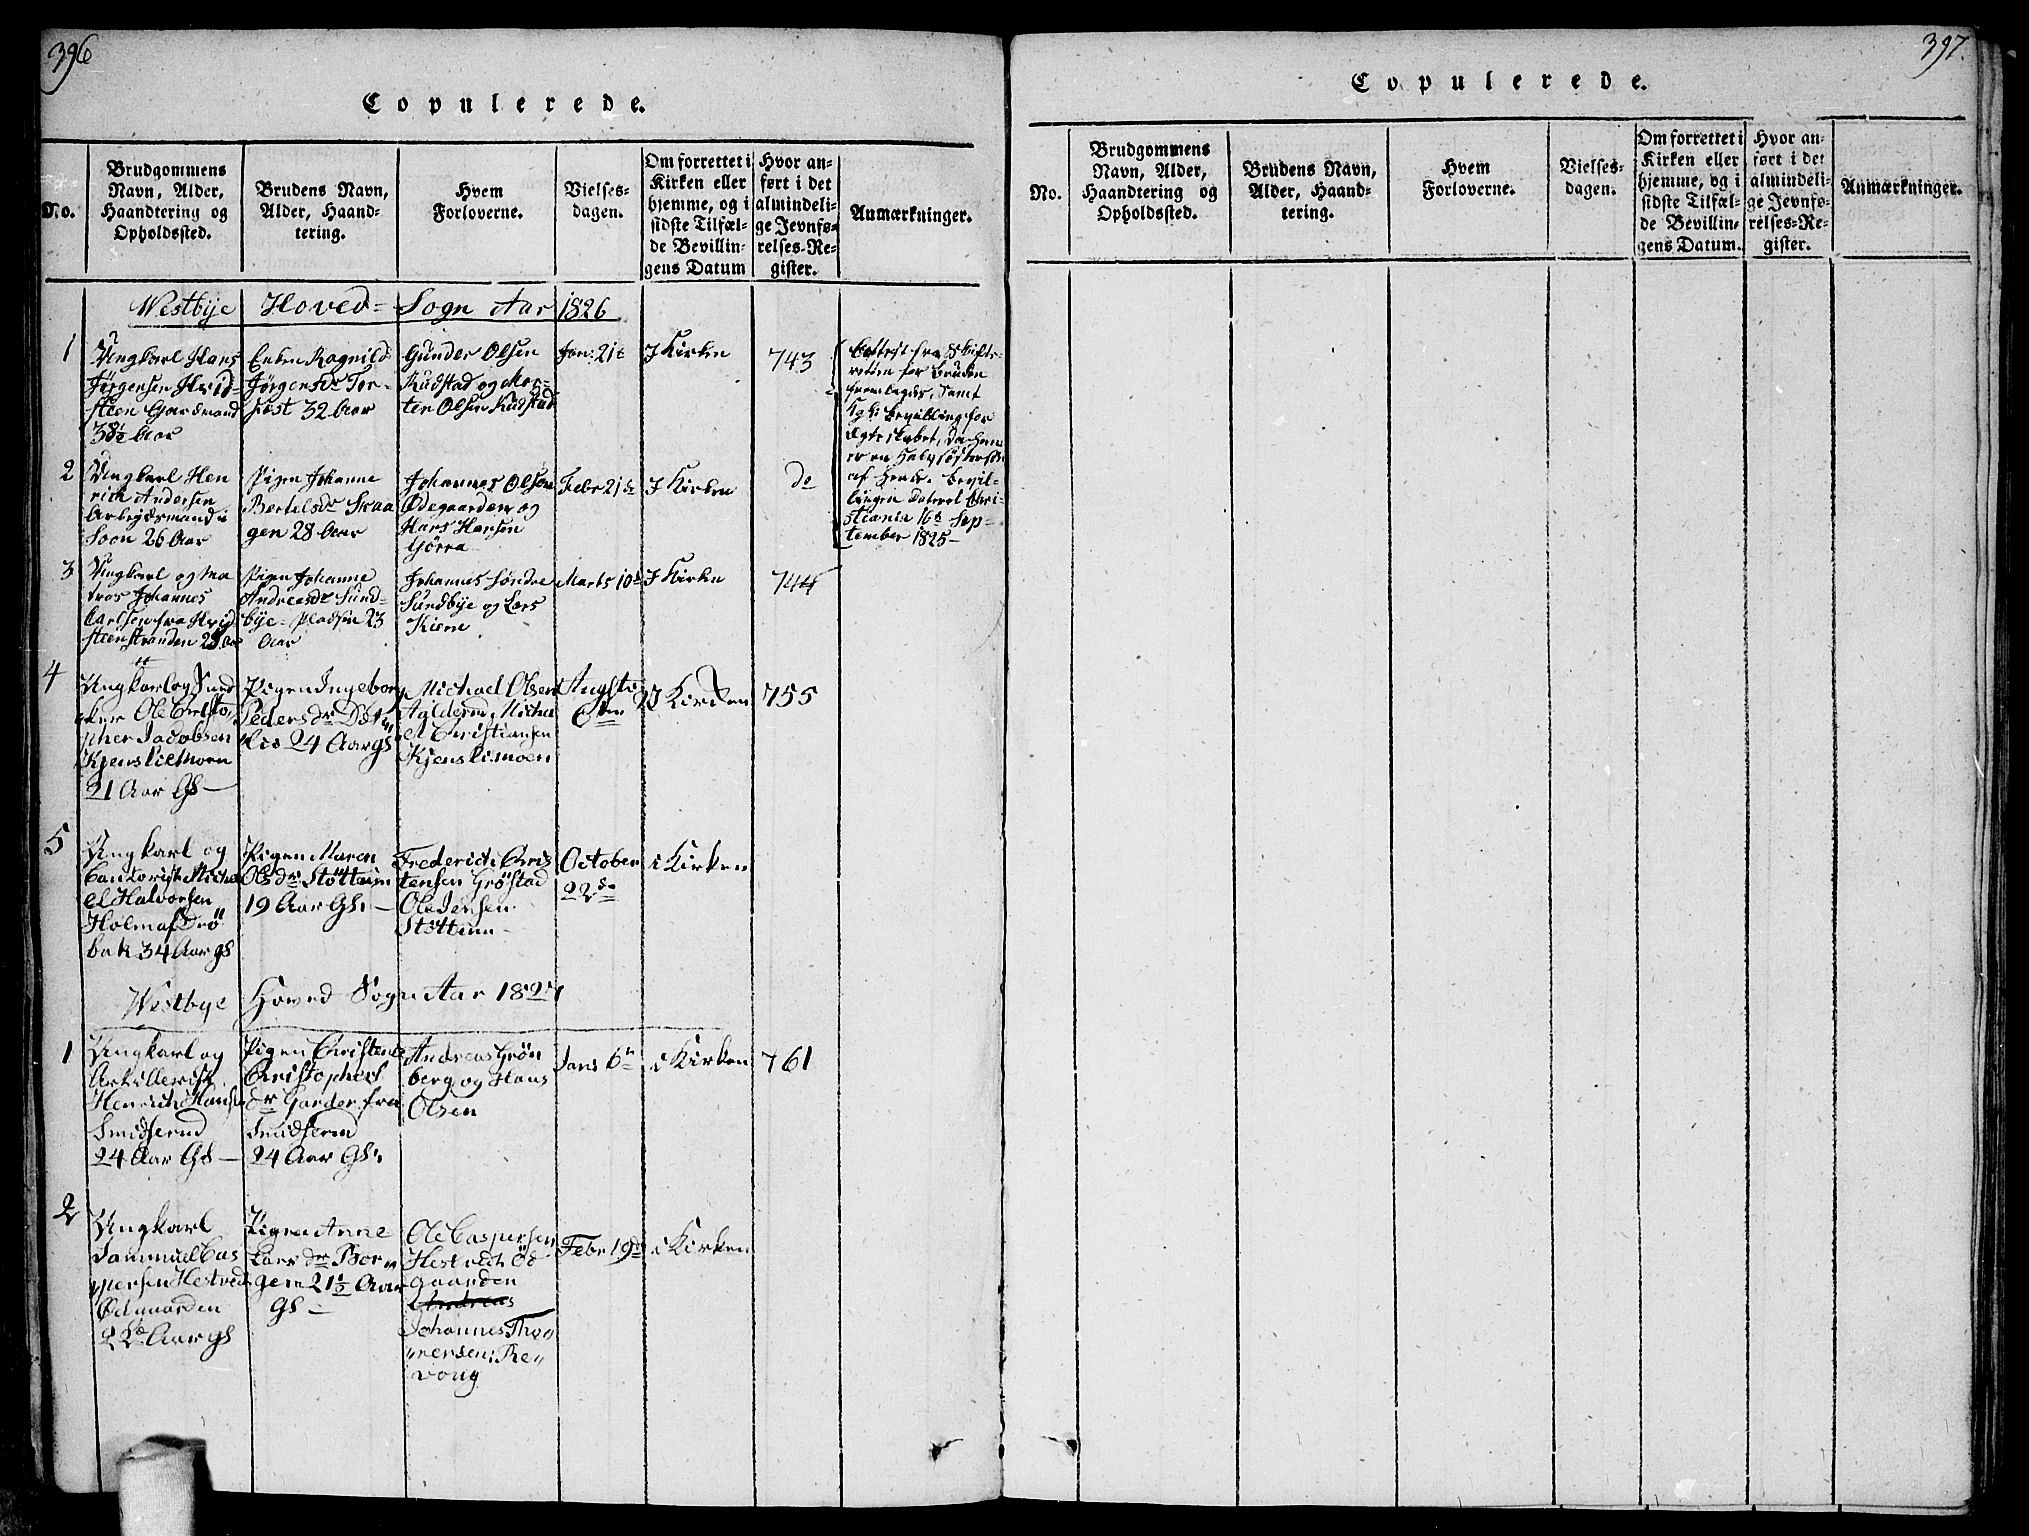 396
Copulerede.
No.
Brudgommens
Navn, Alder,
Haandtering og
Opholdssted.
Brudens Navn,
Alder, Haand-
tering.
Hvem
Forloverne.
Vielses-
dagen.
Om forrettet i
Kirken eller
hjemme, og i
sidste Tilfæl-
de Bevillin-
gens Datum
Hvor an-
ført i det
almindeli-
ge Jevnfø-
relses-Re-
gister.
Anmærkninger.
Westbye Hoved- Sogn Aar 1826
1
Ungkarl Hans
Jörgensen Hvid-
steen Gaardmand
38½ Aar
Enken Ragnild
Jörgensdr Tor-
32 Aar
Gunder Olsen
Rudstad og Mor-
ten Olsen Rudstad
Jan: 21e
I Kirken
743
Attest fra Skifte-
retten for Bruden
fremlagdes, samt
Kgl: Bevilling for
Ægteskabet, da han
er en Halvsöstersön
af hende. Bevil-
lingen dateret Chri-
stiania 16d Sep-
tember 1825-
2
Ungkarl Hen
rich Andersen
Arbeidsmand i
Soon 26 Aar
Pigen Johanne
Bertelsdr Skaa
gen 28 Aar
Johannes Olsen
Ødegaarden og
Hans Hansen
Gjörra
Febr 21de
I Kirken
do
3
Ungkarl og Ma
tros Johannes
Carlsen fra Hvid
steenstranden
Pigen Johanne
Andreasdr Sund-
bye-Pladsen 23
Aar
Johannes Söndre
Sundbye og Lars
Kierre
Marts 10d
I Kirken
744
4
Ungkarl og
Ole Christo
pher Jacobsen
21 Aar Gl-
Pigen Ingeborg
Peders dr
lie 24 Aar gl
Michael Olsen
Miche
el Christiansen
Kjenslimoen
Augsto
6ten
I Kirken
755
5
Ungkarl og
Miche
el Halvorsen
Holm af Drö
bak 34 Aar gl
Pigen Maren
Olsdr Stöttum
19 Aar Gl. -
Frederich Chris
tensen Gröstad
Ole Jensen
Stöttum -
October
22de
i Kirken
Westbye Hoved Sogn Aar 1827
1
Ungkarl og
Artillerist
Henrich Hansen
Smidserud
24 Aar Gl -
Pigen Christene
Christophers
dr Garder fra
Smidserud
24 Aar Gl.
Andreas Grön
berg og Hans
Olsen
Janr 6te
i Kirken
761
2
Ungkarl
Sammuel Cas
persen Hestved
Ödgaarden
Aar gl
Pigen Anne
Lars dr Bor
gen 21½ Aar
Gl -
Ole Caspersen
Hestvedt Öd
gaarden
Andreas
Johannes Tho
mersen
Febr 19de
i Kirken
397.
Copulerede.
No.
Brudgommens
Navn, Alder,
Haandtering og
Opholdssted.
Brudens Navn,
Alder, Haand-
tering.
Hvem
Forloverne.
Vielses-
dagen.
Om forrettet i
Kirken eller
hjemme, og i
sidste Tilfæl-
de Bevillin-
gens Datum.
Hvor an-
ført i det
almindeli-
ge Jevnfø-
relses-Re-
gister.
Anmærkninger.